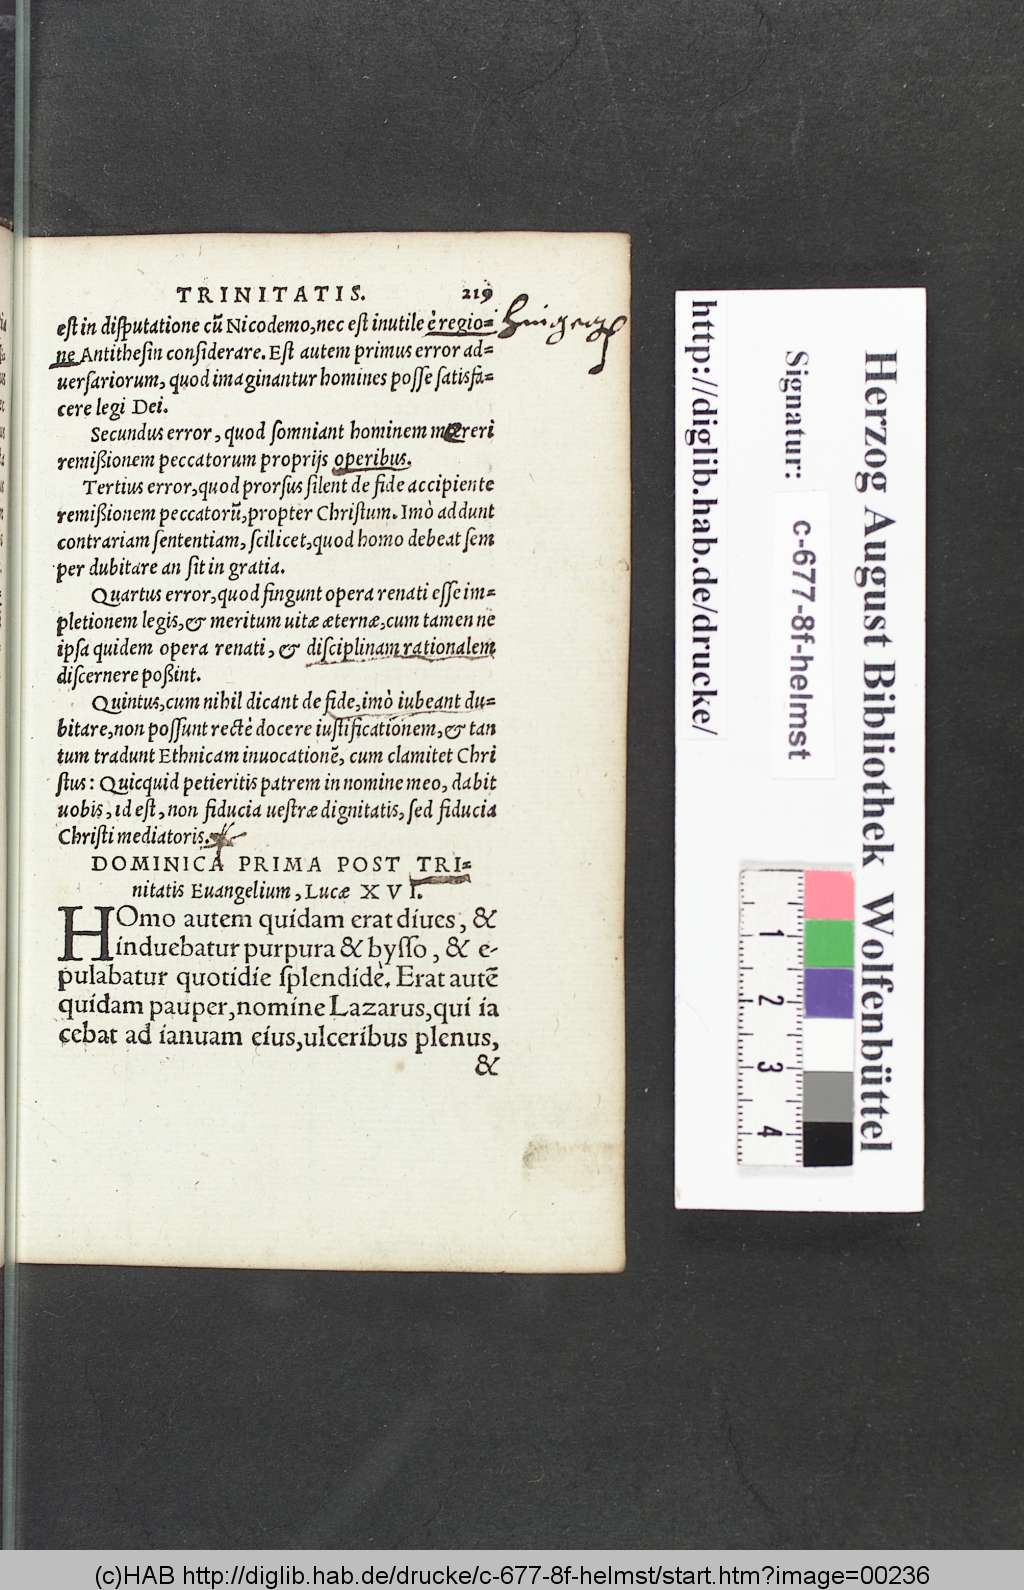 TRINITATIS. 219
est in disputatione cū Nicodemo, nec est inutile è regio=
ne Antithesin considerare. Est autem primus error ad=
uersariorum, quod imaginantur homines posse satisfa=
cere legi Dei.
Secundus error, quod somniant hominem mereri
remißionem peccatorum proprijs operibus.
Tertius error, quod prorsus silent de fide accipiente
remißionem peccatorū, propter Christum. Imò addunt
contrariam sententiam, scilicet, quod homo debeat sem
per dubitare an sit in gratia.
Quartus error, quod fingunt opera renati esse im=
pletionem legis, & meritum uitæ æternæ, cum tamen ne
ipsa quidem opera renati, & disciplinam rationalem
discernere poßint.
Quintus, cum nihil dicant de fide, imò iubeant du=
bitare, non possunt rectè docere iustificationem, & tan
tum tradunt Ethnicam inuocationē, cum clamitet Chri
stus: Quicquid petieritis patrem in nomine meo, dabit
uobis, id est, non fiducia uestræ dignitatis, sed fiducia
Christi mediatoris.
DOMINICA PRIMA POST TRI=
nitatis Euangelium, Lucæ XVI.
HOmo autem quidam erat diues, &
induebatur purpura & bysso, & e-
pulabatur quotidie splendidè. Erat autē
quidam pauper, nomine Lazarus, qui ia
cebat ad ianuam eius, ulceribus plenus,
&
Herzog August Bibliothek Wolfenbüttel
Signatur: c-677-8f-helmst
http://diglib.hab.de/drucke/
1 2 3 4
(c)HAB http://diglib.hab.de/drucke/c-677-8f-helmst/start.htm?image=00236